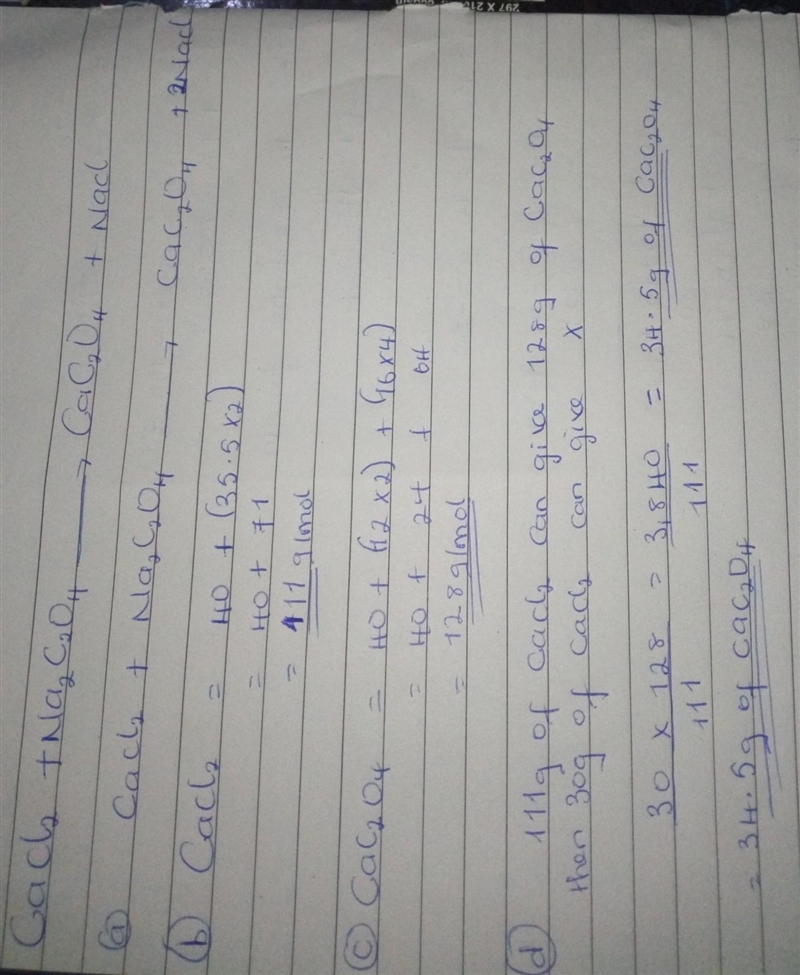 CaCl₂ + Na₂C₂O₄ → CaC₂O₄ + Nacl
(a) CaCl₂ + Na₂C₂O₄ → CaC₂O₄ + 2Nacl
(b) CaCl₂ = 40 + (35.5x2)
= 40 + 71
= 111g/mol
(c) CaC₂O₄ = 40 + (12x2) + (16x4)
= 40 + 24 + 64
= 128g/mol
(d) 111g of CaCl₂ can give 128g of CaC₂O₄
then 30g of CaCl₂ can give X
30 x 128 = 3,840 = 34.5g of CaC₂O₄
111 111
= 34.5g of CaC₂O₄